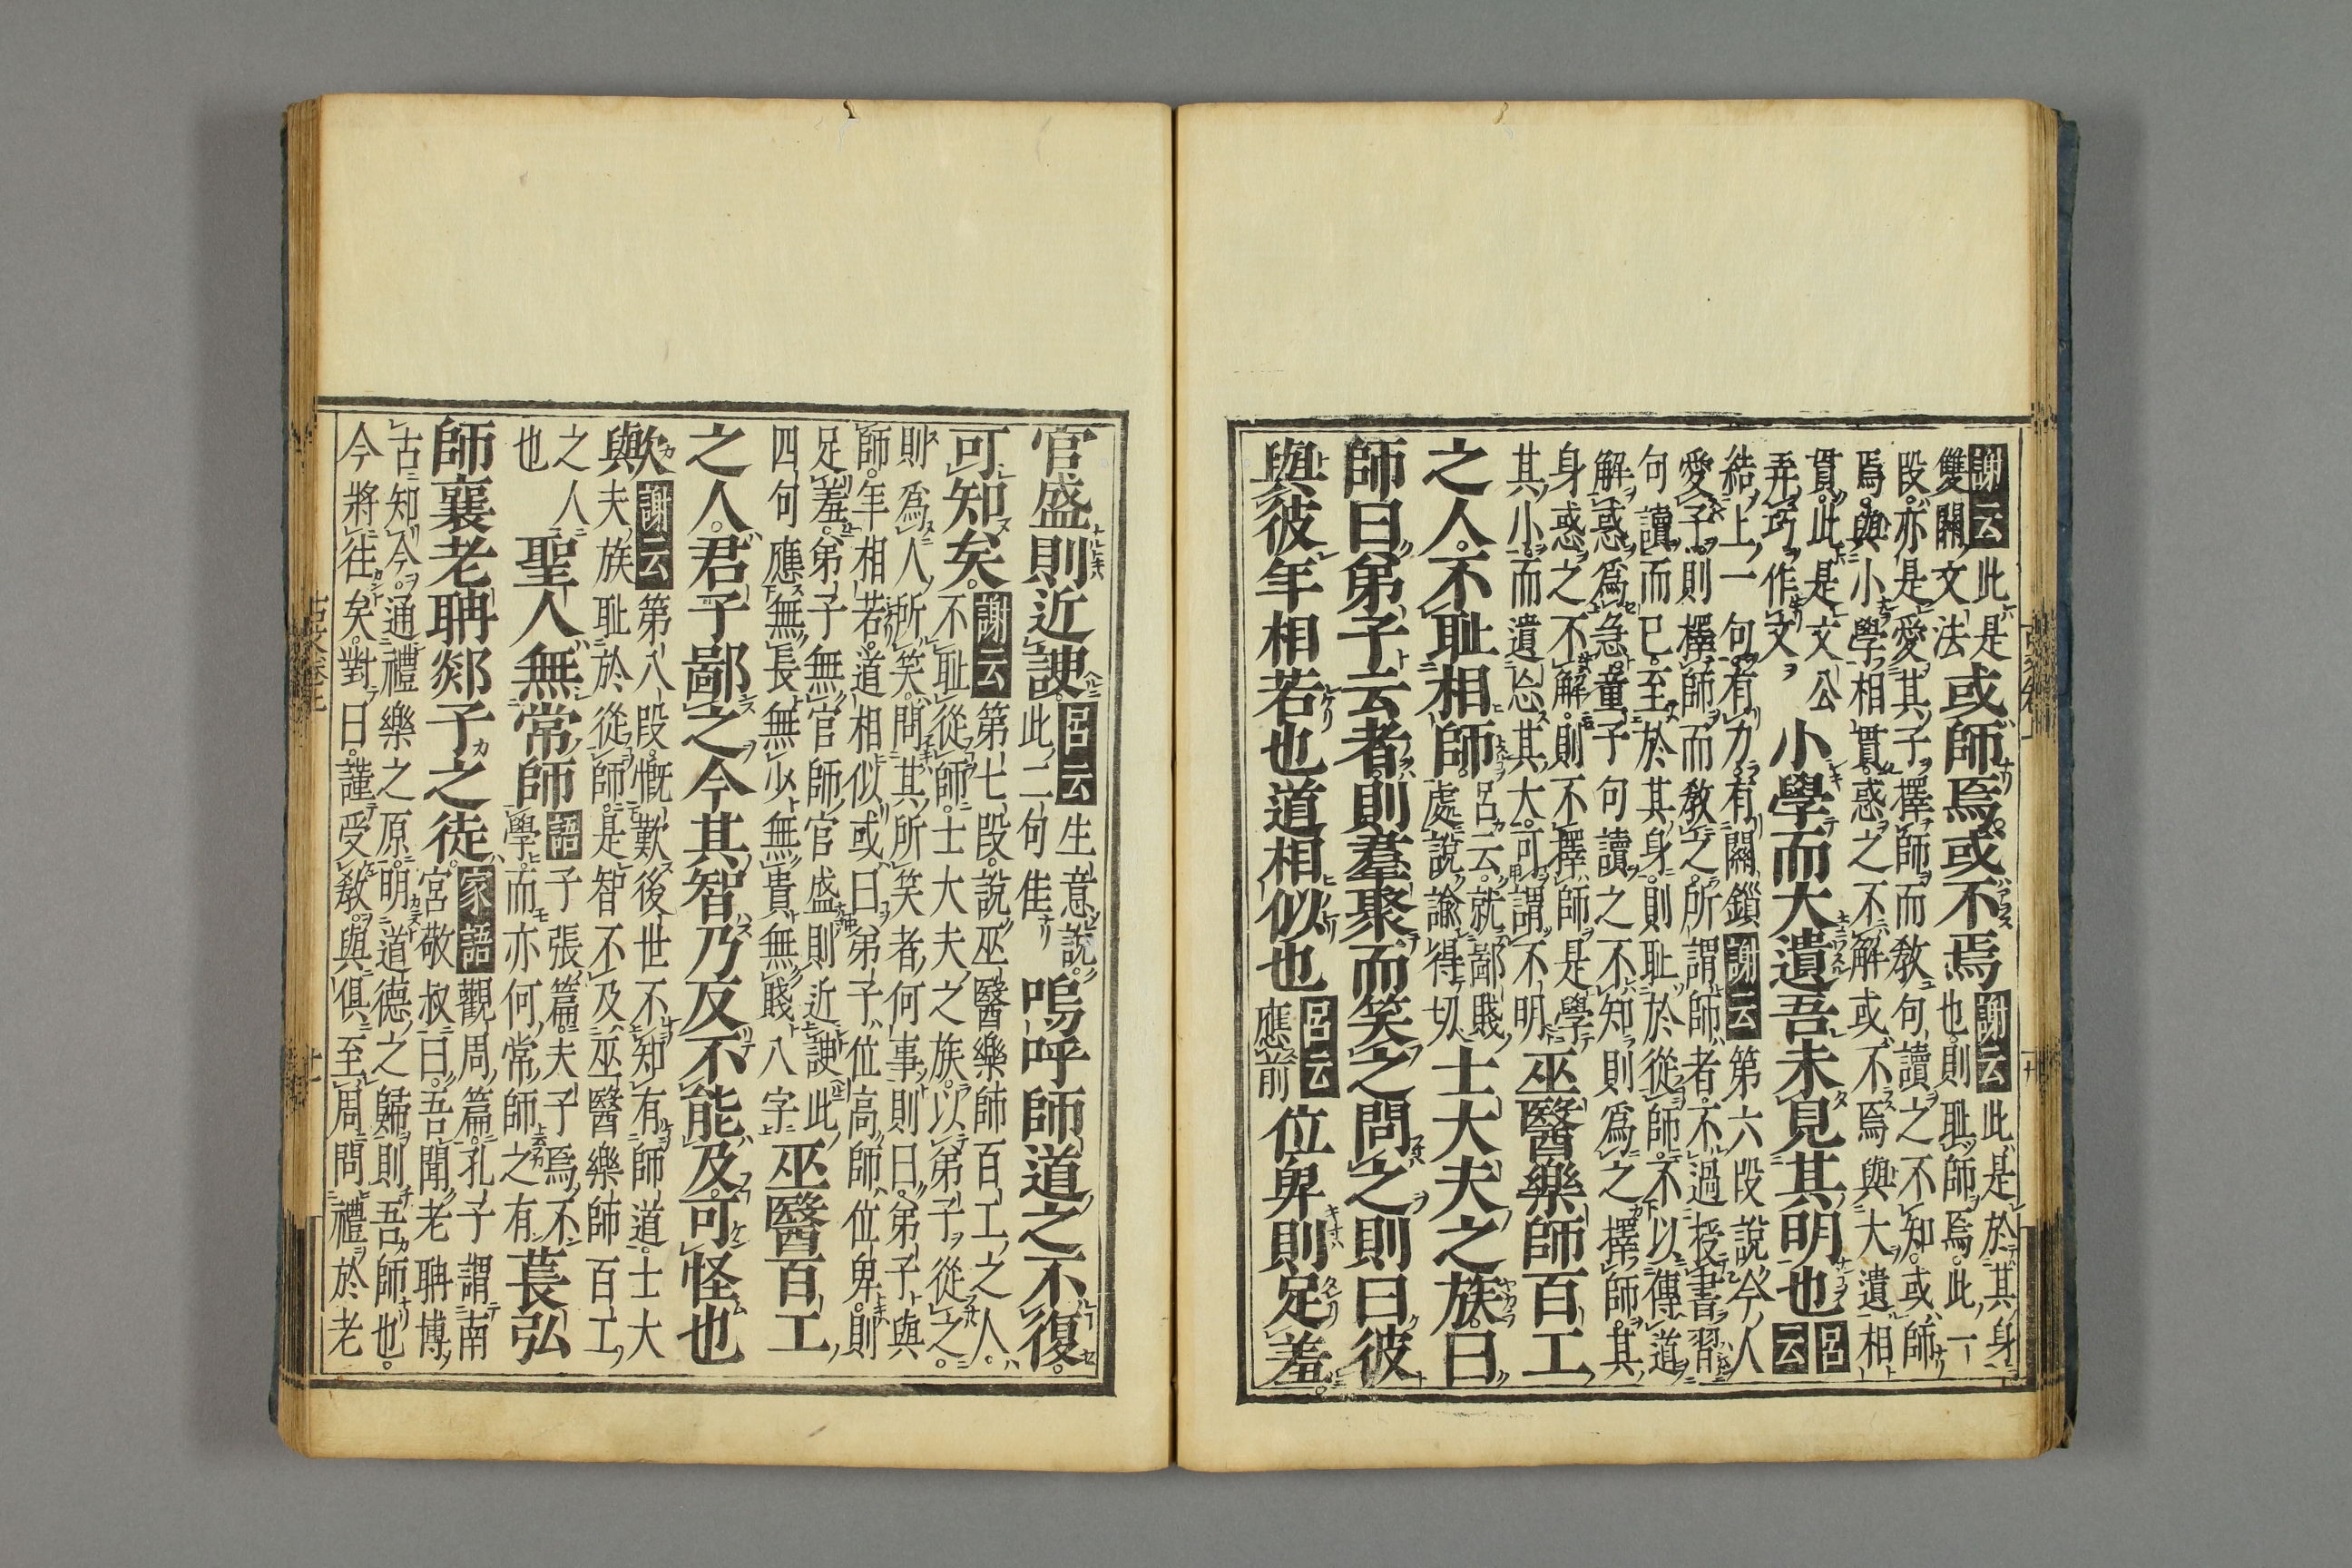 謝云此是
雙關文法
或師焉或不焉
謝云此是於其身
也則耻師焉此一
段亦是愛其子擇師而教句讀之不知或師
焉與小學相貫惑之不解或不焉與大遺相
貫此是文公
弄巧作文
小學而大遺吾未見其明也
呂云
結上一句有力有關鎖謝云第六段說今人
愛子則擇師而敎之所謂師者不過授書習
句讀而已至於其身則耻於從師不以傳道
解惑爲急童子句讀之不知則爲之擇師其
身惑之不解則不擇師是學
其小而遺其大可謂不明
巫醫樂師百工
之人不耻相師
呂云就鄙賤
處說諭得切
士大夫之族曰
師曰弟子云者則羣聚而笑之問之則曰彼
與彼年相若也道相似也
呂云
應前
位卑則足羞
官盛則近諛
呂云生意說
此二句佳
嗚呼師道之不復
可知矣
謝云第七段說巫醫樂師百工之人
不耻從師士大夫之族以弟子從之
則爲人所笑問其所笑者何事則曰弟子與
師年相若道相似或曰弟子位高師位卑則
足羞弟子無官師官盛則近諛此
四句應無長無少無貴無賤八字
巫醫百工
之人君子鄙之今其智乃反不能及可怪也
歟
謝云第八段慨歎後世不知有師道士大
夫族耻於從師是智不及巫醫樂師百工
之人
也
聖人無常師
語子張篇夫子焉不
學而亦何常師之有
萇弘
師襄老聃郯子之徒
家語觀周篇孔子謂南
宮敬叔曰吾聞老聃博
古知今通禮樂之原明道德之歸則吾師也
今將往矣對曰謹受敎與俱至周問禮於老